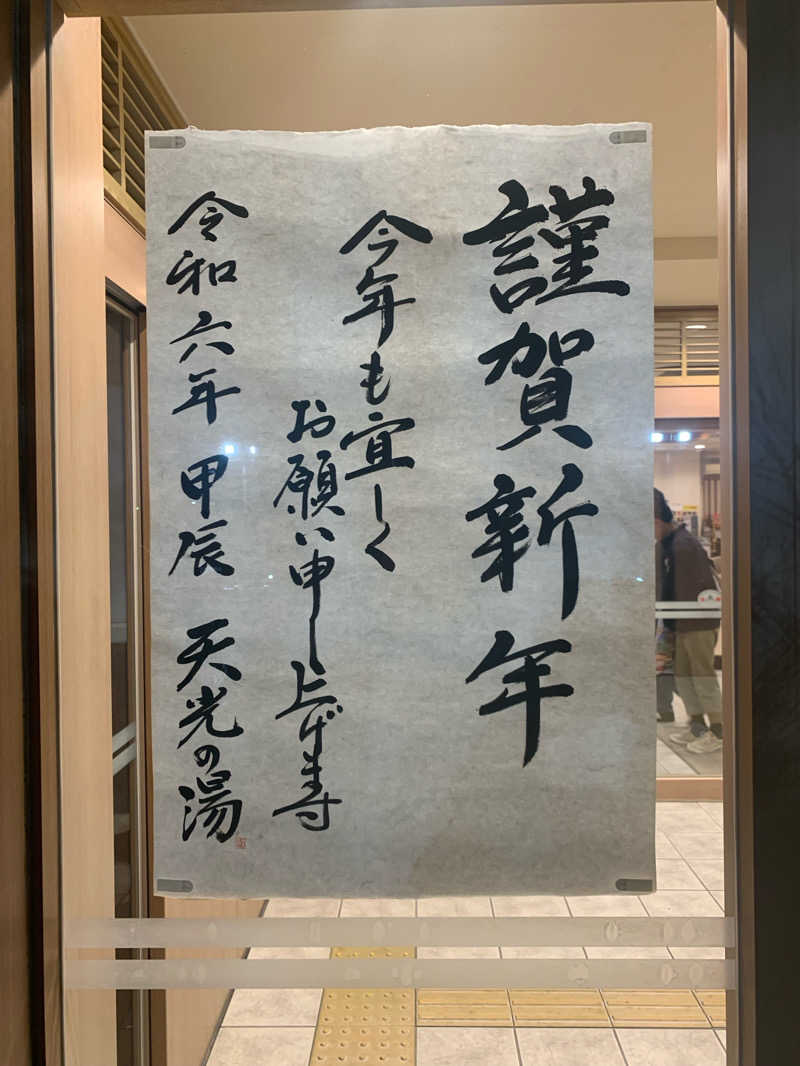 謹賀新年
今年も宜しく
お願い申し上げ寿
令和六年 甲辰 天光の湯